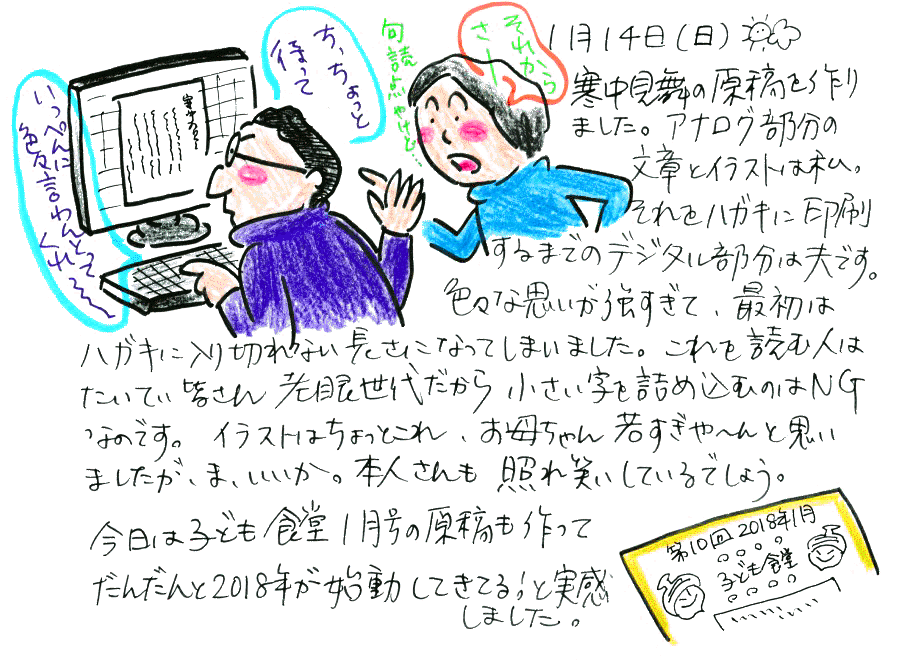 1月14日(日)
寒中見舞の原稿を作り
ました。アナログ部分の
文章とイラストは私。
それをハガキに印刷
するまでのデジタル部分は夫です。
色々な思いが強すぎて、最初は
ハガキに入り切れない長さになってしまいました。これを読む人は
たいてい皆さん老眼世代だから小さい字を詰め込むのはNG
なのです。イラストはちょっとこれ、お母ちゃん若すぎや〜んと思い
ましたが、ま、いいか。本人さんも照れ笑いしているでしょう。
今日は子ども食堂1月号の原稿も作って
だんだんと2018年が始動してきてる!と実感
しました。
それから
さー
句読点やけど…
ち、ちょっと
待って
いっぺんに
色々言わんとって
くれ〜
第10回 2018年1月
子ども食堂